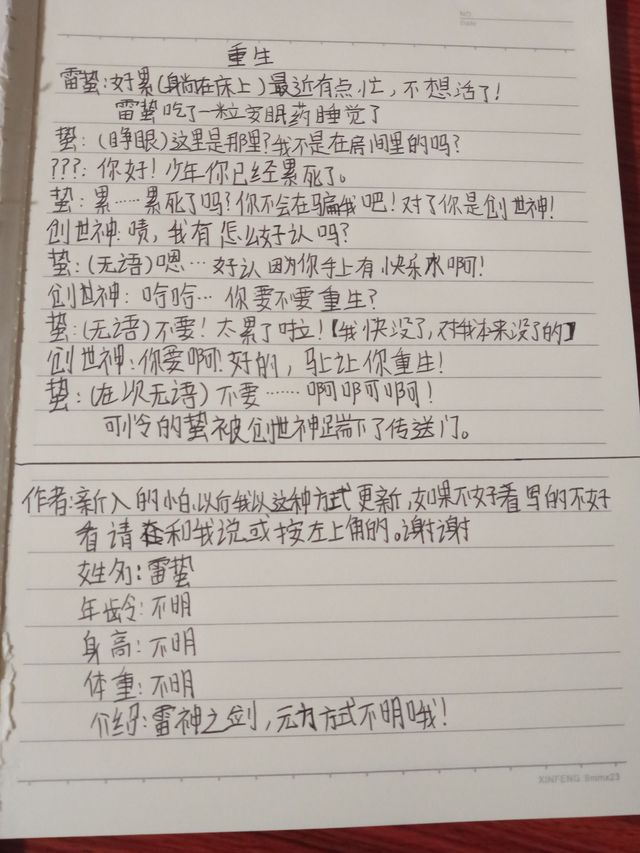 NO.
Date
重生
雷蛰:好累(躺在床上)最近有点忙,不想活了!
雷蛰吃了一粒安眠药睡觉了
蛰:(睁眼)这里是那里?我不是在房间里的吗?
???:你好!少年你已经累死了。
蛰:累……累死了吗?你不会在骗我吧!对了你是创世神!
创世神:啧,我有怎么好认吗?
蛰:(无语)嗯…好认因为你手上有快乐水啊!
创世神:哈哈…你要不要重生?
蛰:(无语)不要!太累了啦!【我快没了,对我本来没了的】
创世神:你要啊!好的,马上让你重生!
蛰:(在次无语)不要……啊啊啊啊!
可怜的蛰被创世神踹下了传送门。
作者:新入的小白、以后我以这种方式更新,如果不好看写的不好
看请在和我说或按左上角的。谢谢
姓名:雷蛰
年龄:不明
身高:不明
体重:不明
介绍:雷神之剑,元力方式不明哦!
XINFENG 9mmx23